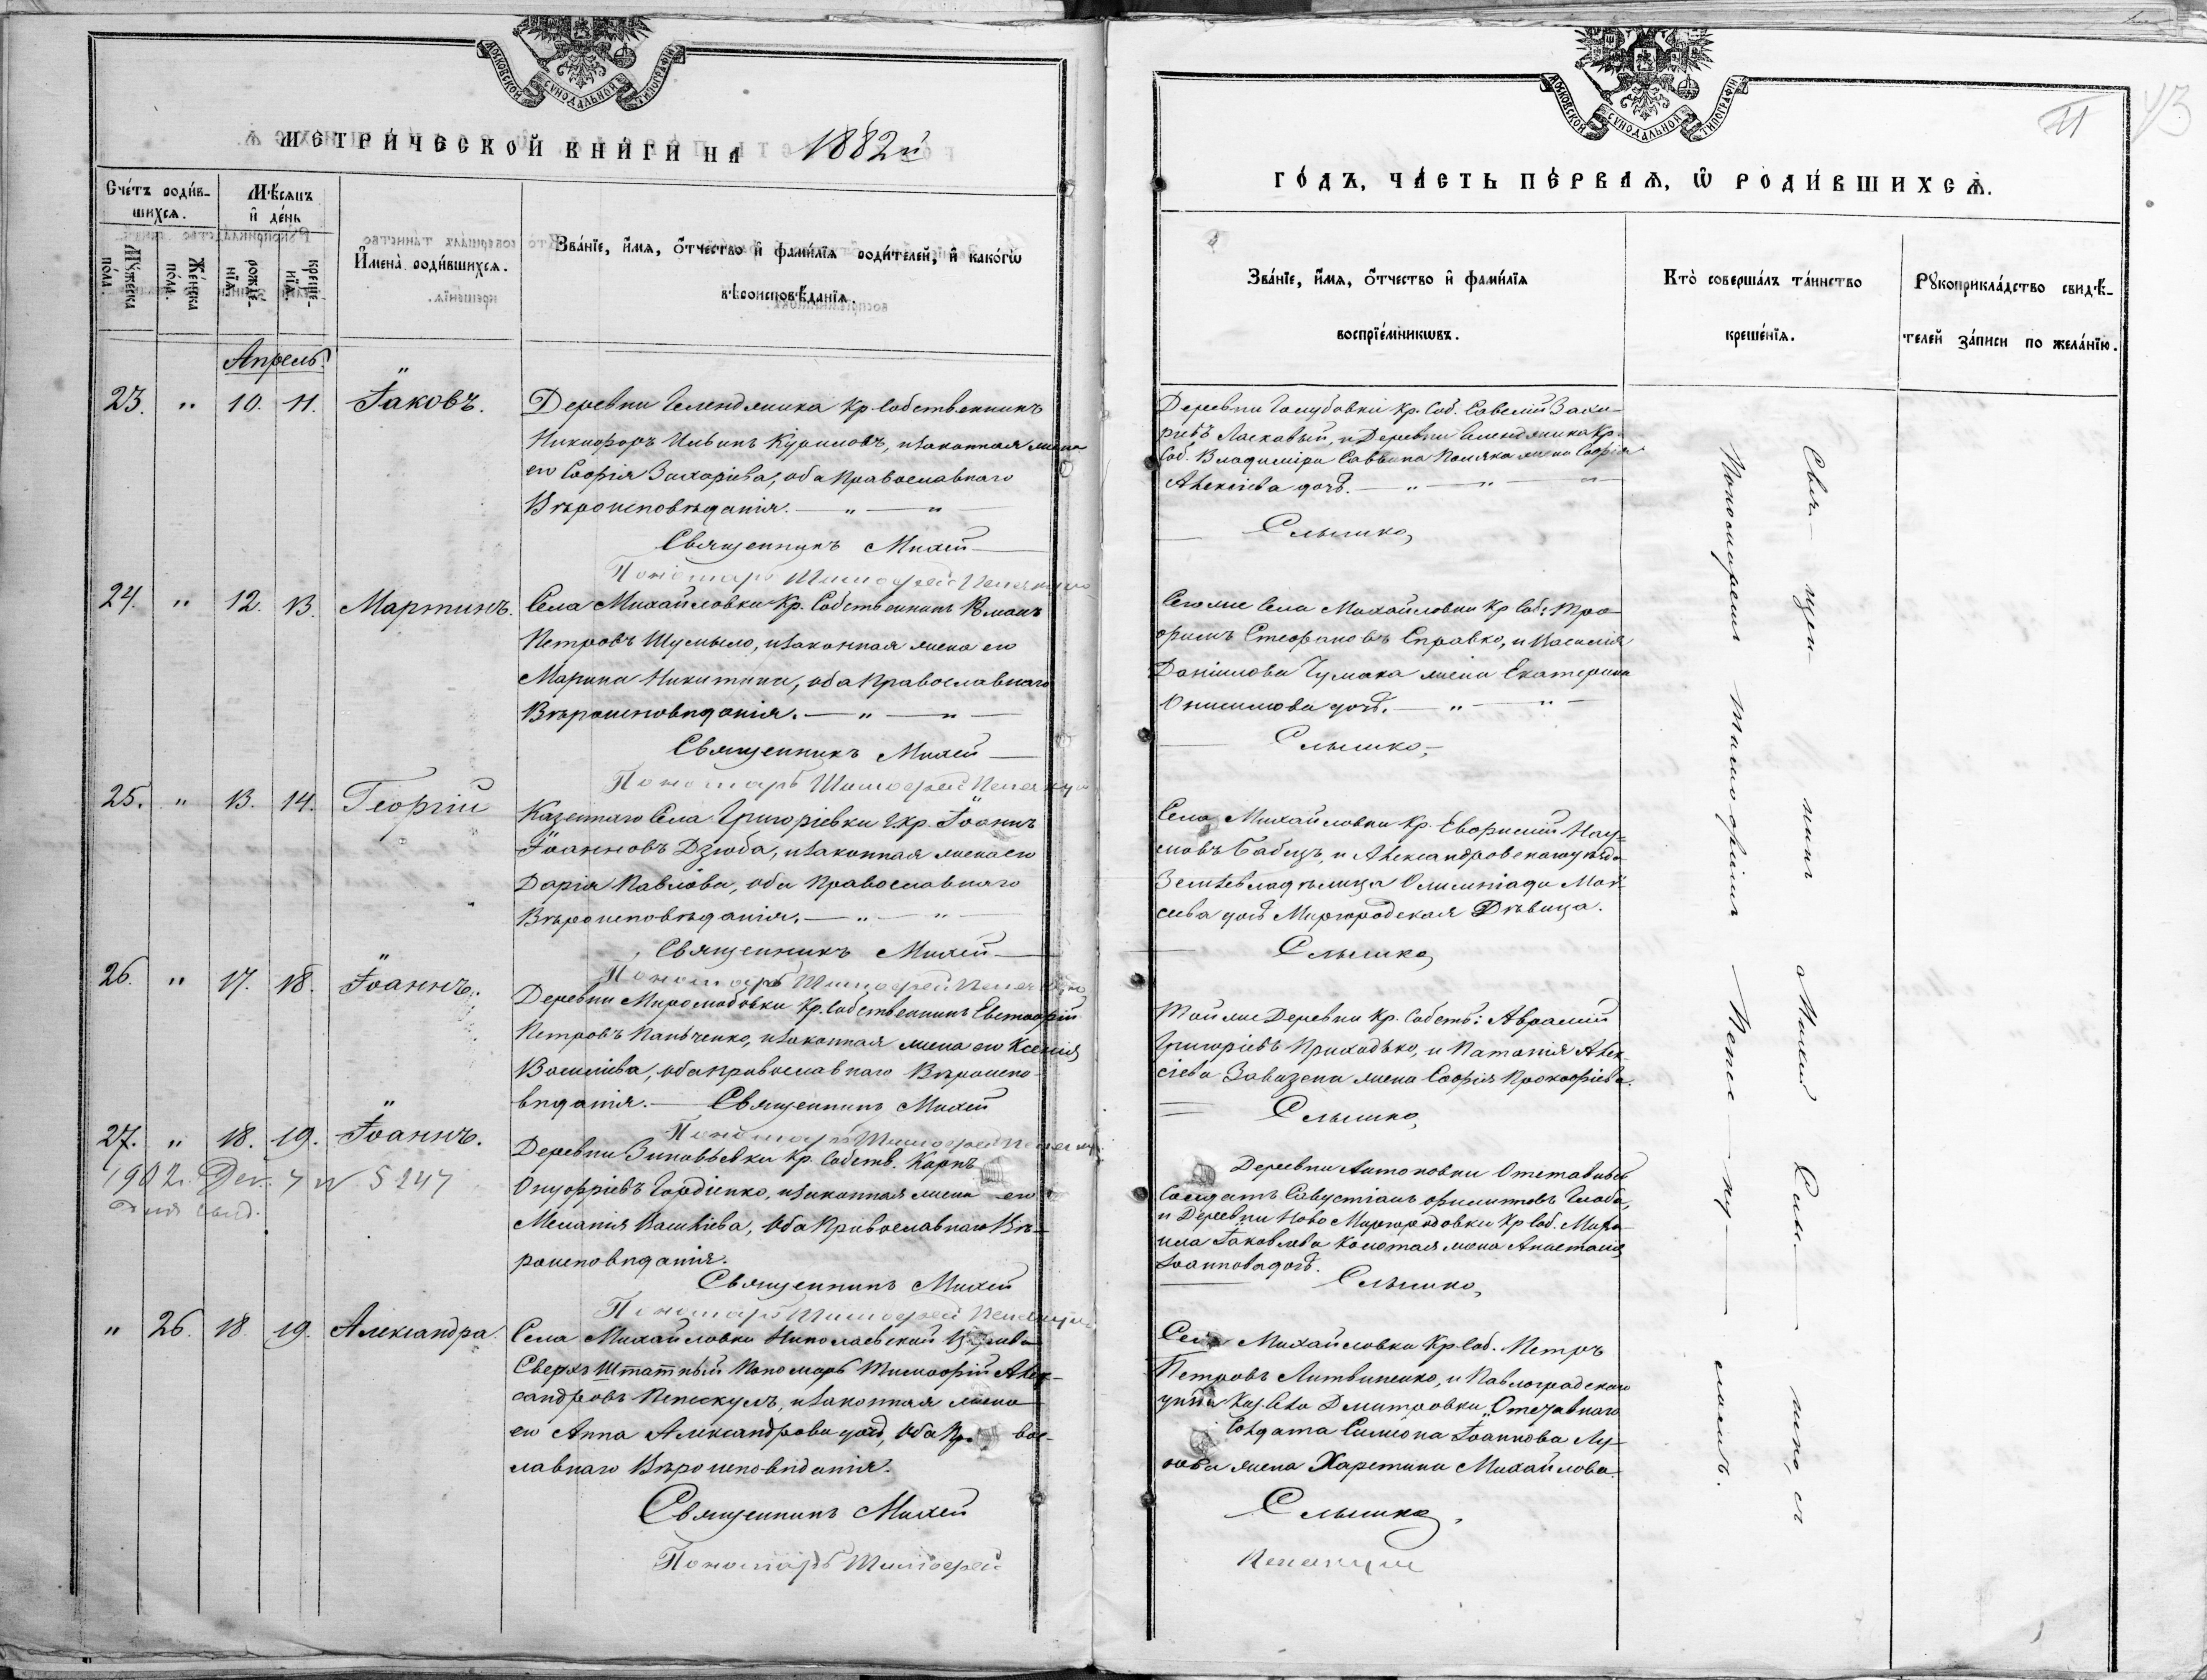 МОСКОВСКОЙ СѴНОДАЛЬНОЙ ТИПОГРАФІИ
МЕТРИ́ЧЕСКОЙ КНИ́ГИ НА 1882й
Сче́тъ роди́в-
шихсѧ.
Мѣ́сѧцъ
и҆ де́нь
Мꙋ́жеска по́ла.
Же́нска по́ла.
рожде́-
нїѧ.
креще́-
нїѧ.
И҆мена̀ роди́вшихсѧ.
Зва́нїе, и҆́мѧ, ѻ҆́тчество и҆ фами́лїѧ роди́телей, и҆ како́гѡ
вѣроисповѣ́данїѧ.
Апрель.
23. " 10. 11. Іаковъ.
Деревни Челендяшка Кр. Собственникъ
Никифоръ Ильинъ Куриловъ, и законная жена
его Софія Захаріева, оба Православнаго
Вѣроисповѣданія. — " — "
Священникъ Михей
Пономарь Тимофей Пепескул
24. " 12. 13. Мартинъ.
Села Михайловки Кр. Собственникъ Романъ
Петровъ Шумыло, и законная жена его
Марина Никитина, оба Православнаго
Вѣроисповѣданія. — " — "
Священникъ Михей
Пономарь Тимофей Пепескул
25. " 13. 14. Георгій
Казеннаго Села Григоріевки Г. Кр. Іоаннъ
Іоанновъ Дзюба, и законная жена его
Дарія Павлова, оба Православнаго
Вѣроисповѣданія. — " — "
Священникъ Михей
Пономарь Тимофей Пепескул
26. " 17. 18. Іоаннъ.
Деревни Миролюбовки Кр. Собственникъ Евстафій
Петровъ Панченко, и законная жена его Ксенія
Василіева, оба православнаго Вѣроиспо-
вѣданія. — Священникъ Михей
Пономарь Тимофей Пепескул
27. " 18. 19. Іоаннъ.
1902 г. Дек. 7 № 5247
Деревни Зиновьевки Кр. Собств. Карпъ
Онуфріевъ Гордіенко, и законная жена его
Меланія Василіева, оба Православнаго Вѣ-
роисповѣданія.
Священникъ Михей
Пономарь Тимофей Пепескул
" 26. 18. 19. Александра.
Села Михайловки Николаевской Церкви
Сверхъ Штатный Пономарь Тимофій Алек-
сандровъ Пепескулъ, и законная жена
его Анна Александрова дочь, оба Пр вос-
лавнаго Вѣроисповѣданія.
Священникъ Михей
Пономарь Тимофей
МОСКОВСКОЙ СѴНОДАЛЬНОЙ ТИПОГРАФІИ
43
ГО́ДЪ, ЧА́СТЬ ПЕ́РВАѦ, Ѡ҆ РОДИ́ВШИХСѦ.
Зва́нїе, и҆́мѧ, ѻ҆́тчество и҆ фами́лїѧ
воспрїе́мникѡвъ.
Кто̀ соверша́лъ та́инство
креще́нїѧ.
Рꙋкоприкла́дство свидѣ́-
телей за́писи по жела́нїю.
Деревни Голубовки Кр. Соб. Савелій Заха-
ріевъ Ласковый, и Деревни Челендяшка Кр.
Соб. Владиміра Саввина Поляка жена Софія
Алексіева дочь. — " — " — "
Слышко,
Сего же Села Михайловки Кр. Соб: Тро-
фимъ Стефановъ Справко, и Василія
Даніилова Чумака жена Екатерина
Онисимова дочь. — " — " —
Слышко,
Села Михайловки Кр. Евфимій Нау-
мовъ Бабецъ, и Александровскаго уѣзда
Землевладѣлица Олимпіада Мои-
сеева дочь Миргородская Дѣвица.
Слышко,
Той же Деревни Кр. Собств: Аврамій
Григоріевъ Приходько, и Наталія Алек-
сіева жена Софія Прокофіева.
Слышко,
Деревни Антоновки Отставный
Солдатъ Савустіанъ Филиповъ Глоба,
и Деревни Ново Миргородовки Кр. Соб. Миха-
ила Іаковлева жена Анастасія
Іоаннова дочь.
Слышко,
Села Михайловки Кр. Соб. Петръ
Петровъ Литвиненко, и Павлоградскаго
уѣзда Каз. Села Дмитровки Отставнаго
Солдата Симеона Іоаннова
жена Харетина Михайлова.
Слышко,
Пепескул
Свя — щен — никъ Михей Слы — шко, съ
Пономаремъ Тимофіемъ Пепес — ку — ломъ.